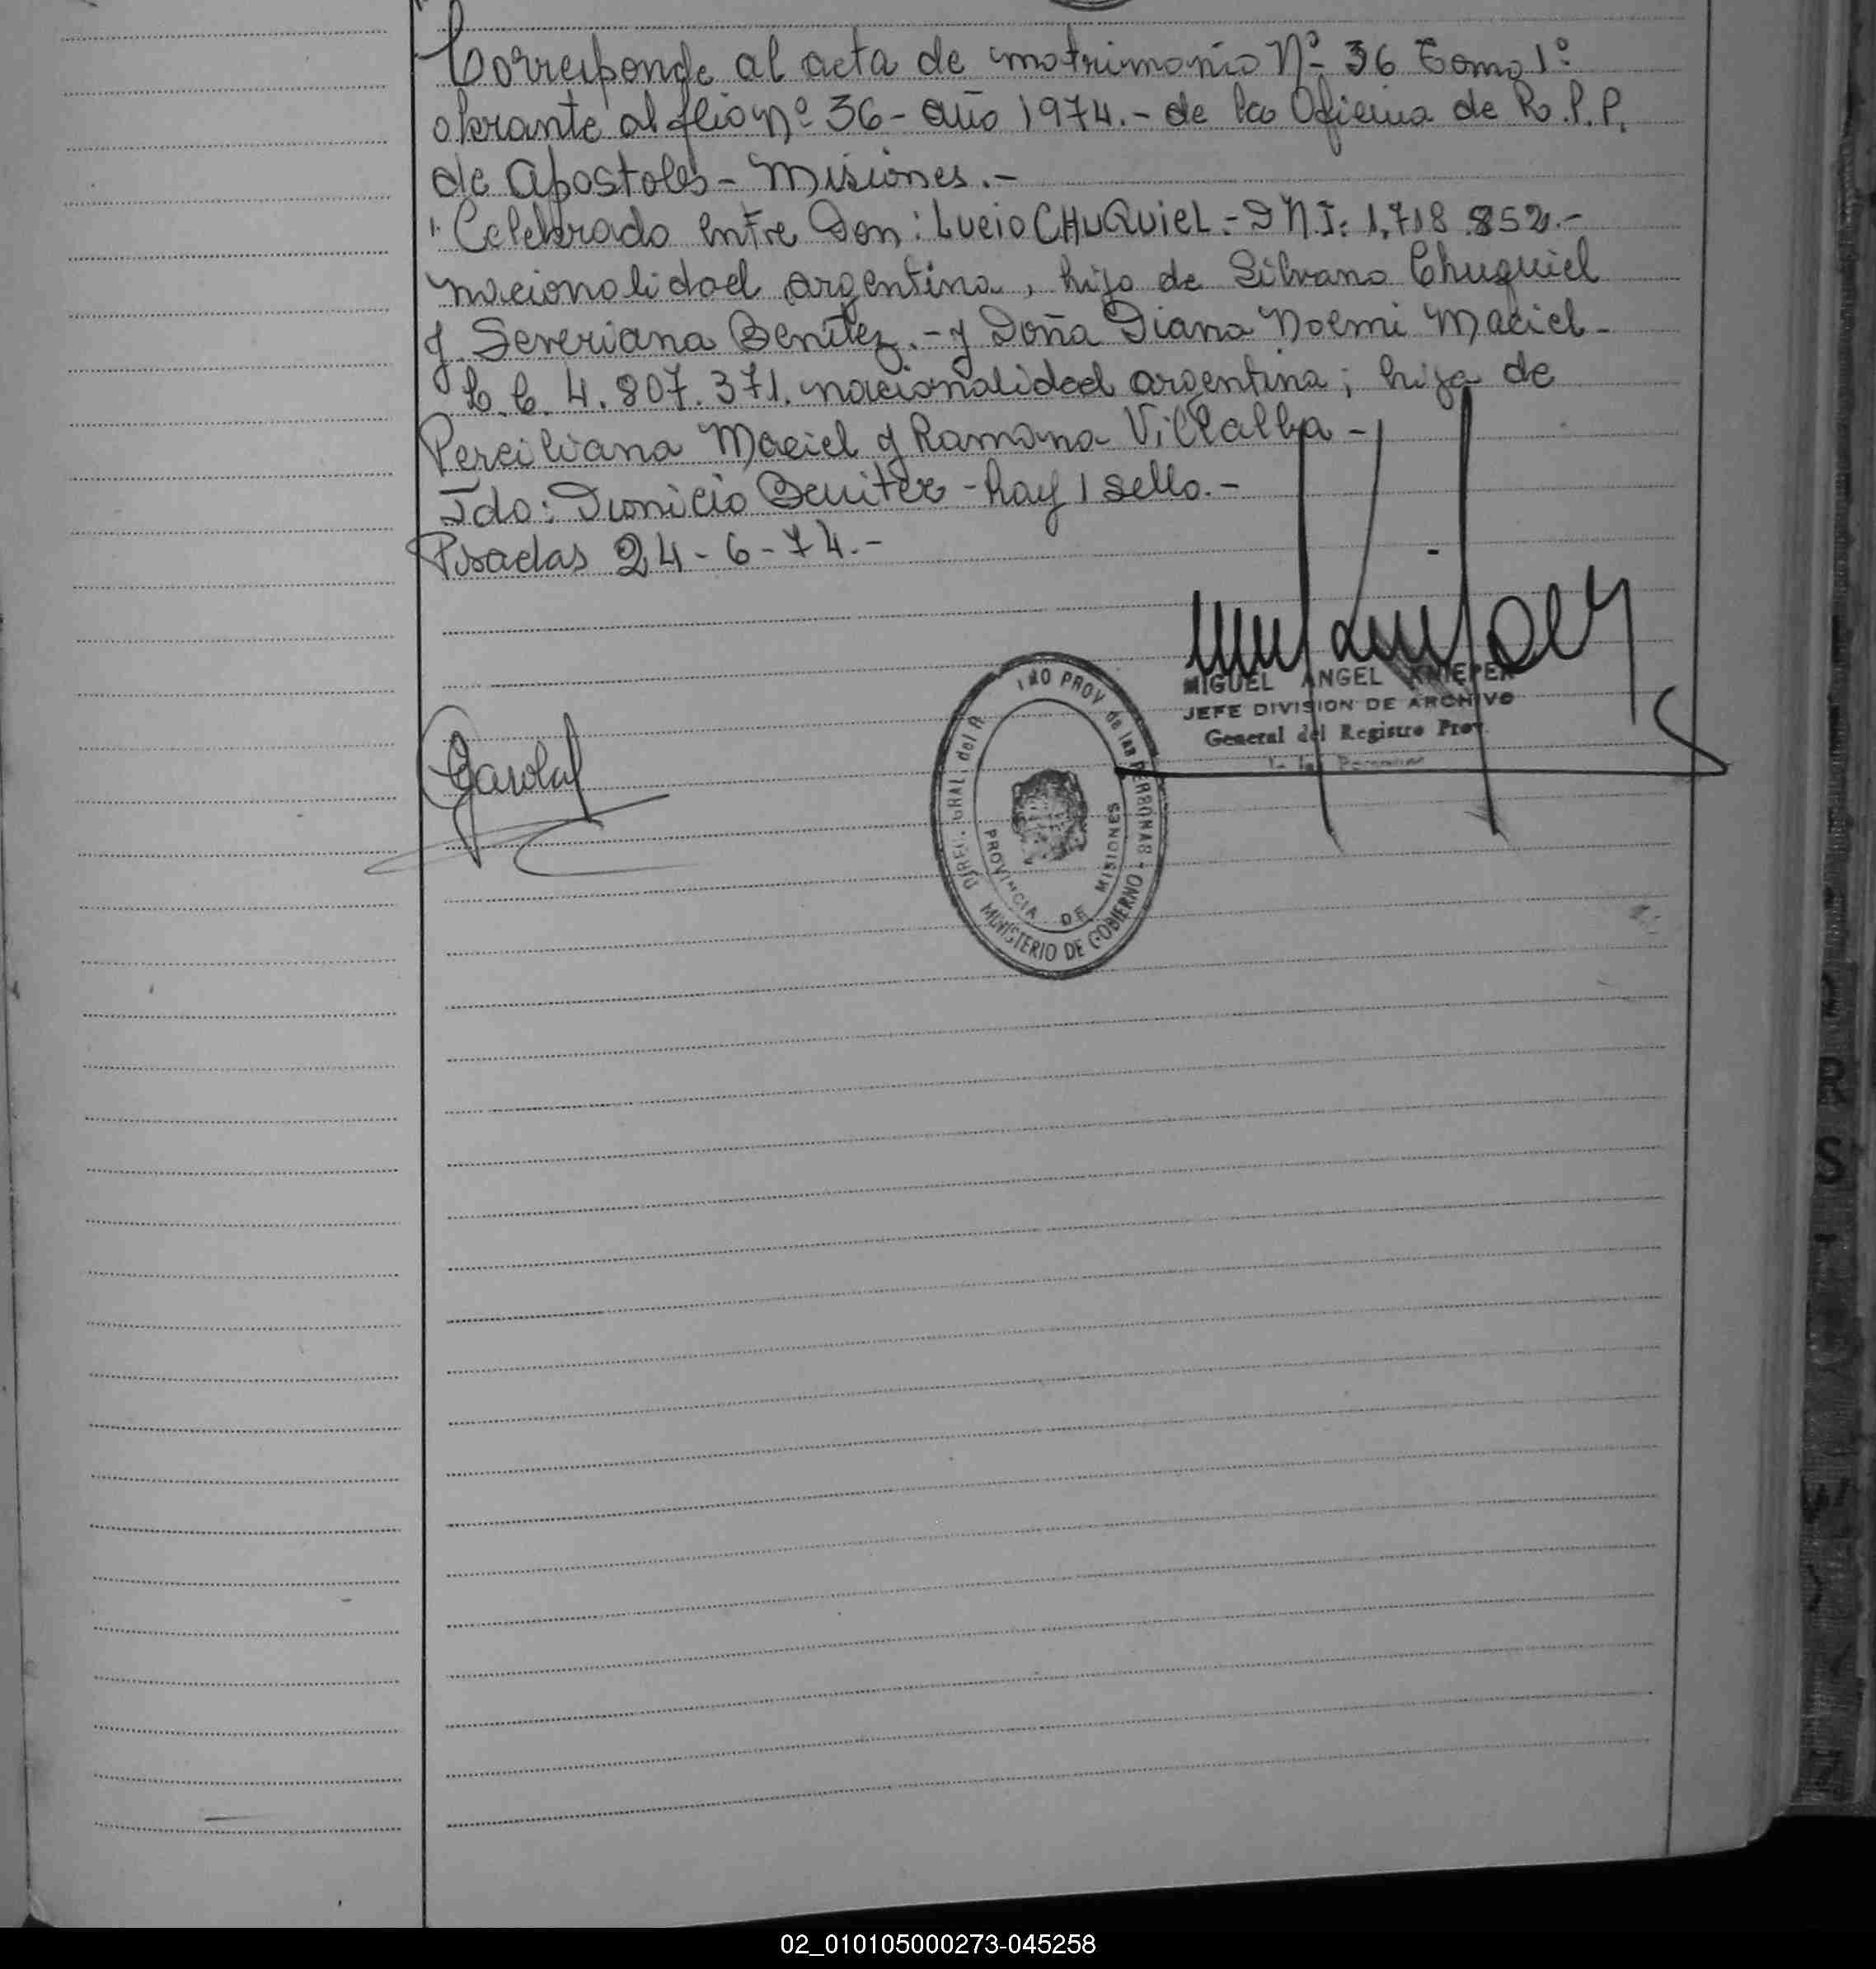 Corresponde al acta de matrimonio Nº 36 Tomo 1º
obrante al flio Nº 36 - año 1974.- de la Oficina de R.P.P.
de Apostoles - Misiones.-
Celebrado entre Don: Lucio CHUQUIEL.- DNI: 1.718.852.-
nacionalidad argentina, hijo de Silvano Chuquiel
y Severiana Benitez.- y Doña Diana Noemi Maciel-
L.C. 4.807.371. nacionalidad argentina; hija de
Perciliana Maciel y Ramona Villalba -
Fdo: Dionicio Benitez - hay 1 sello.-
Posadas 24-6-74.-
MIGUEL ANGEL KNIEPER
JEFE DIVISION DE ARCHIVO
General del Registro Prov.
DIREC. GRAL. del PROV de las PERSONAS - MINISTERIO DE GOBIERNO
PROVINCIA DE MISIONES
02_010105000273-045258